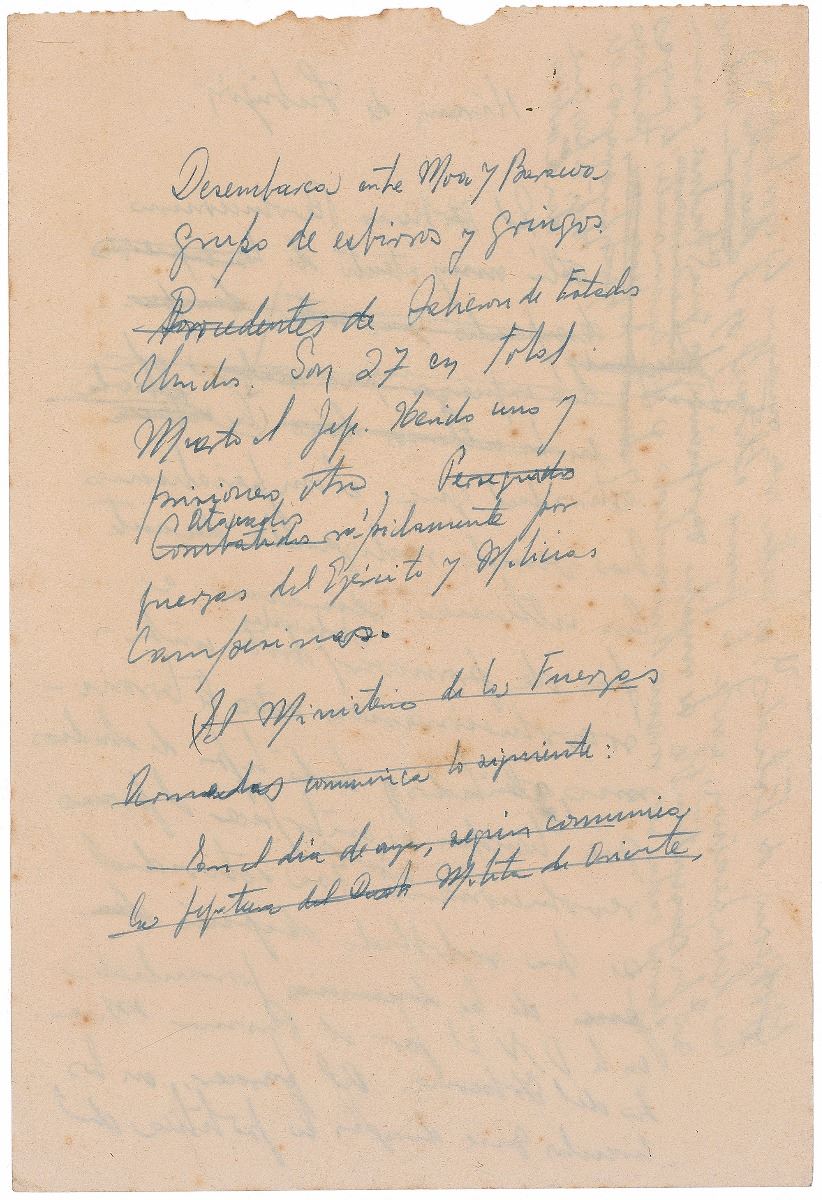 Desembarca entre Moa y Baracoa
grupo de esbirros y gringos.
Procedentes de Salieron de Estados
Unidos. Son 27 en Total.
Muerto el Jefe. Herido uno y
prisionero otro. Perseguidos
atacados
Combatidos rápidamente por
fuerzas del Ejército y Milicias
Campesinas.
El Ministerio de las Fuerzas
Armadas comunica lo siguiente:
En el día de ayer, según comunica
la Jefatura del Militar de Oriente,